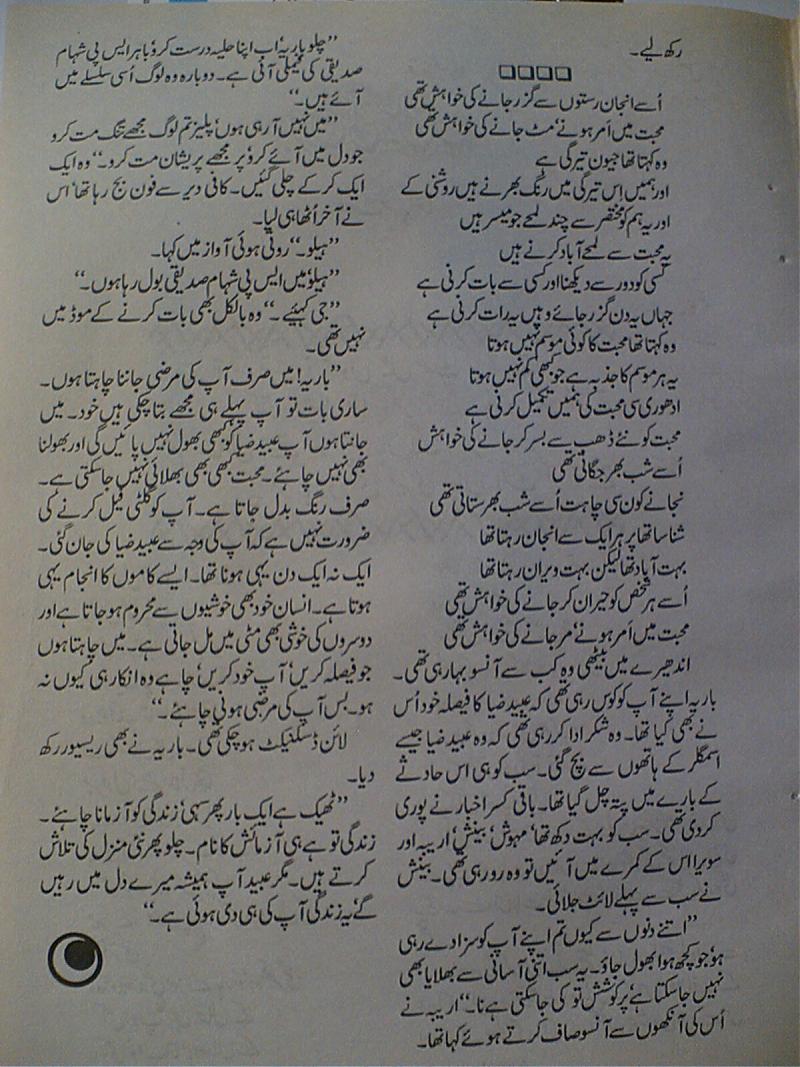 رکھ لیے۔
□□□□
اُسے انجان رستوں سے گزر جانے کی خواہش تھی
محبت میں اَمر ہونے‘ مٹ جانے کی خواہش تھی
وہ کہتا تھا جیون تیرگی ہے
اور ہمیں اِس تیرگی میں رنگ بھرنے ہیں روشنی کے
اور یہ ہم کو مختصر سے چند لمحے جو میسر ہیں
یہ محبت سے لمحے آباد کرنے ہیں
کسی کو دور سے دیکھنا اور کسی سے بات کرنی ہے
جہاں یہ دن گزر جائے وہیں یہ رات کرنی ہے
وہ کہتا تھا محبت کا کوئی موسم نہیں ہوتا
یہ ہر موسم کا جذبہ ہے جو کبھی کم نہیں ہوتا
ادھوری سی محبت کی ہمیں تکمیل کرنی ہے
محبت کو نئے ڈھب سے بسر کر جانے کی خواہش
اُسے شب بھر جگاتی تھی
نجانے کون سی چاہت اُسے شب بھر ستاتی تھی
شناسا تھا پر ہر ایک سے انجان رہتا تھا
بہت آباد تھا لیکن بہت ویران رہتا تھا
اُسے ہر شخص کو حیران کر جانے کی خواہش تھی
محبت میں اَمر ہونے‘ مر جانے کی خواہش تھی
اندھیرے میں بیٹھی وہ کب سے آنسو بہا رہی تھی۔
باریہ اپنے آپ کو کوس رہی تھی کہ عبید ضیا کا فیصلہ خود اُس
نے بھی کیا تھا۔ وہ شکر ادا کر رہی تھی کہ وہ عبید ضیا جیسے
اسمگلر کے ہاتھوں سے بچ گئی۔ سب کو ہی اس حادثے
کے بارے میں پتہ چل گیا تھا۔ باقی کسر اخبار نے پوری
کردی تھی۔ سب کو بہت دکھ تھا‘ مہوش‘ بینش‘ اریبہ اور
سویرا اس کے کمرے میں آئیں تو وہ رو رہی تھی۔ بینش
نے سب سے پہلے لائٹ جلائی۔
’’اتنے دنوں سے کیوں تم اپنے آپ کو سزا دے رہی
ہو‘ جو کچھ ہوا بھول جاؤ۔ یہ سب اتنی آسانی سے بھلایا بھی
نہیں جاسکتا ہے‘ پر کوشش تو کی جاسکتی ہے نا۔‘‘ اریبہ نے
اُس کی آنکھوں سے آنسو صاف کرتے ہوئے کہا تھا۔
’’چلو باریہ‘ اب اپنا حلیہ درست کرو‘ باہر ایس پی شہام
صدیقی کی فیملی آئی ہے۔ دوبارہ وہ لوگ اُسی سلسلے میں
آئے ہیں۔‘‘
’’میں نہیں آرہی ہوں‘ پلیز تم لوگ مجھے تنگ مت کرو
جو دل میں آئے کرو‘ پر مجھے پریشان مت کرو۔‘‘ وہ ایک
ایک کرکے چلی گئیں۔ کافی دیر سے فون بج رہا تھا‘ اس
نے آخر اُٹھا ہی لیا۔
’’ہیلو۔‘‘ روتی ہوئی آواز میں کہا۔
’’ہیلو‘ میں ایس پی شہام صدیقی بول رہا ہوں۔‘‘
’’جی کہئیے۔‘‘ وہ بالکل بھی بات کرنے کے موڈ میں
نہیں تھی۔
’’باریہ! میں صرف آپ کی مرضی جاننا چاہتا ہوں۔
ساری بات تو آپ پہلے ہی مجھے بتاچکی ہیں خود۔ میں
جانتا ہوں آپ عبید ضیا کو کبھی بھول نہیں پائیں گی اور بھولنا
بھی نہیں چاہئے۔ محبت کبھی بھی بھلائی نہیں جاسکتی ہے۔
صرف رنگ بدل جاتا ہے۔ آپ کو گلٹی فیل کرنے کی
ضرورت نہیں ہے کہ آپ کی وجہ سے عبید ضیا کی جان گئی۔
ایک نہ ایک دن یہی ہونا تھا۔ ایسے کاموں کا انجام یہی
ہوتا ہے۔ انسان خود بھی خوشیوں سے محروم ہوجاتا ہے اور
دوسروں کی خوشی بھی مٹی میں مل جاتی ہے۔ میں چاہتا ہوں
جو فیصلہ کریں‘ آپ خود کریں‘ چاہے وہ انکار ہی کیوں نہ
ہو۔ بس آپ کی مرضی ہونی چاہئے۔‘‘
لائن ڈسکنیکٹ ہوچکی تھی۔ باریہ نے بھی ریسیور رکھ
دیا۔
’’ٹھیک ہے ایک بار پھر سہی‘ زندگی کو آزمانا چاہئے۔
زندگی تو ہے ہی آزمائش کا نام۔ چلو پھر نئی منزل کی تلاش
کرتے ہیں۔ مگر عبید آپ ہمیشہ میرے دل میں رہیں
گے‘ یہ زندگی آپ کی ہی دی ہوئی ہے۔‘‘